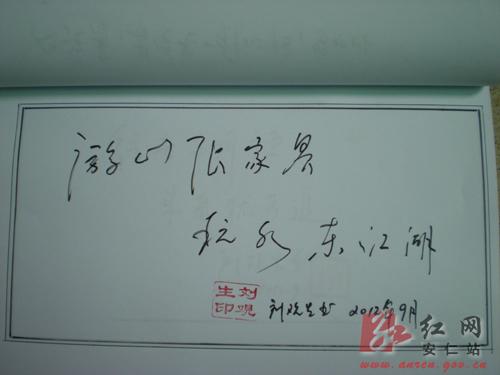 游山张家界
玩水东江湖
刘观
生印
刘观生书 2012年9月
红网
安仁站
www.anren.gov.cn